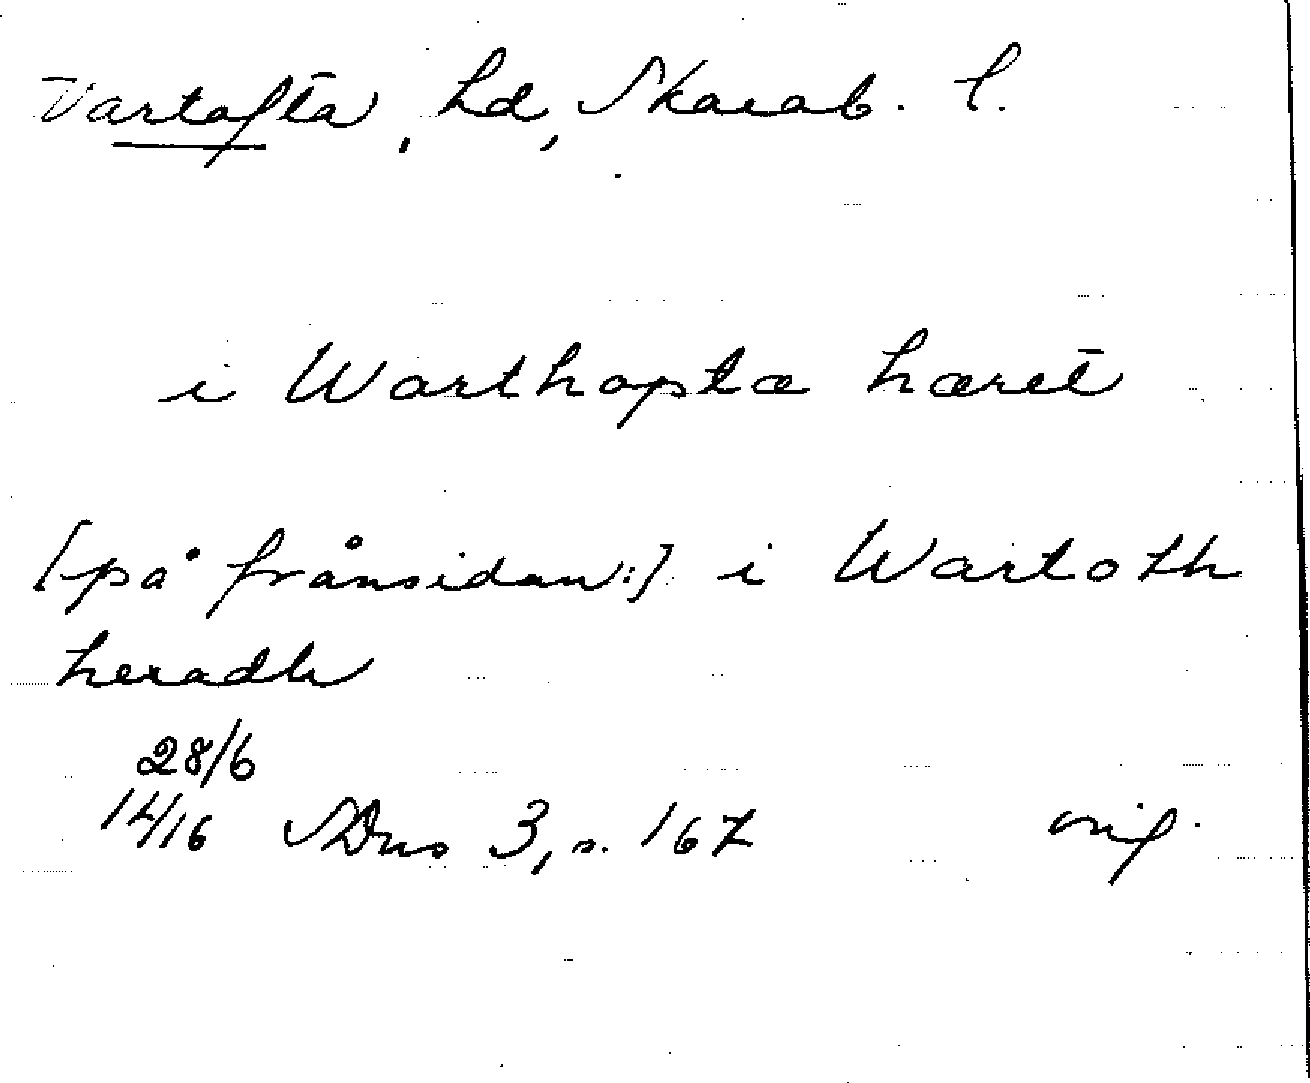 Vartofta, hd, Skarab. l.
i Warthoptæ hæret
[på frånsidan:] i Wartoth
heradh
28/6
14/16 SDns 3, s. 167 orig.